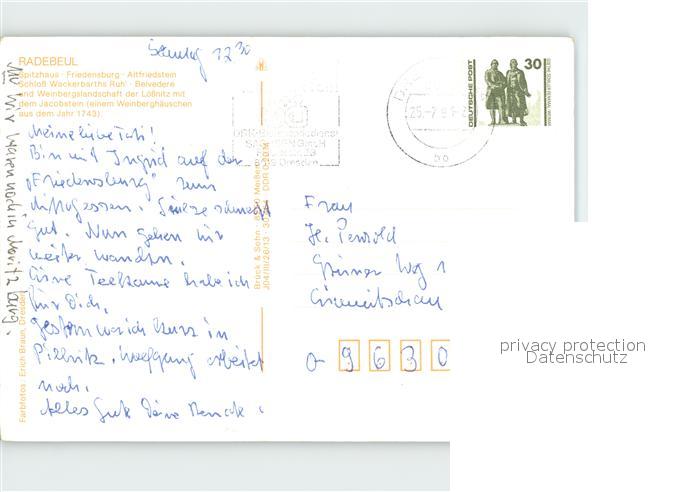 Sonntag 12 30
RADEBEUL
Spitzhaus · Friedensburg · Altfriedstein
Schloß Wackerbarths Ruh' · Belvedere
und Weinbergslandschaft der Lößnitz mit
dem Jacobstein (einem Weinberghäuschen
aus dem Jahr 1743)
Meine liebe
Bin mit Ingrid auf der
„Friedensburg" zum
Mittagessen. schmeckt
gut. Nun gehen wir
weiter wandern.
Eine Teekanne habe ich
für Dich.
Gestern war ich kurz in
Pillnitz. Wolfgang arbeitet
noch.
Alles Gute Deine
Wir waren noch in Moritzburg.
Farbfotos: Erich Braun, Dresden
Brück & Sohn · Meißen
DEUTSCHE POST
30
Dresden
Frau
H.
Grüner Weg 1
Crimmitschau
O- 9630
privacy protection
Datenschutz